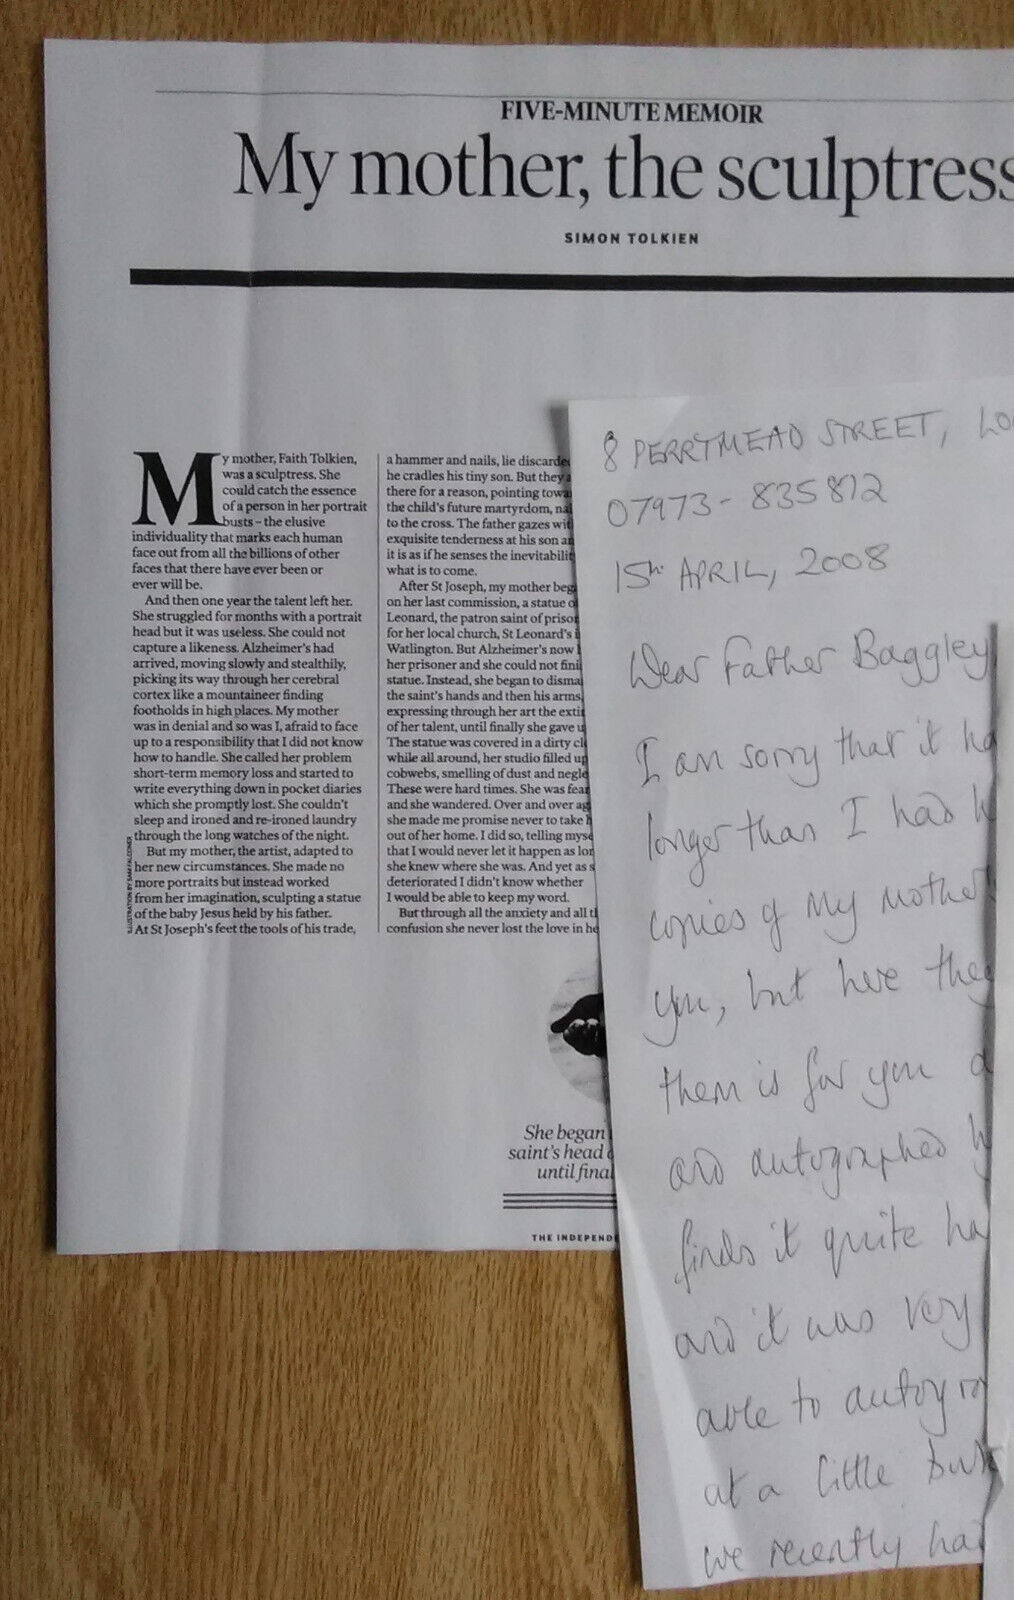 FIVE-MINUTE MEMOIR
My mother, the sculptress
SIMON TOLKIEN
My mother, Faith Tolkien,
was a sculptress. She
could catch the essence
of a person in her portrait
busts – the elusive
individuality that marks each human
face out from all the billions of other
faces that there have ever been or
ever will be.
And then one year the talent left her.
She struggled for months with a portrait
head but it was useless. She could not
capture a likeness. Alzheimer's had
arrived, moving slowly and stealthily,
picking its way through her cerebral
cortex like a mountaineer finding
footholds in high places. My mother
was in denial and so was I, afraid to face
up to a responsibility that I did not know
how to handle. She called her problem
short-term memory loss and started to
write everything down in pocket diaries
which she promptly lost. She couldn't
sleep and ironed and re-ironed laundry
through the long watches of the night.
But my mother, the artist, adapted to
her new circumstances. She made no
more portraits but instead worked
from her imagination, sculpting a statue
of the baby Jesus held by his father.
At St Joseph's feet the tools of his trade,
ILLUSTRATION BY SAM FALCONER
a hammer and nails, lie discarde
he cradles his tiny son. But they a
there for a reason, pointing towa
the child's future martyrdom, nai
to the cross. The father gazes wit
exquisite tenderness at his son an
it is as if he senses the inevitabilit
what is to come.
After St Joseph, my mother beg
on her last commission, a statue o
Leonard, the patron saint of prison
for her local church, St Leonard's i
Watlington. But Alzheimer's now
her prisoner and she could not fini
statue. Instead, she began to disma
the saint's hands and then his arms,
expressing through her art the exti
of her talent, until finally she gave u
The statue was covered in a dirty cl
while all around, her studio filled up
cobwebs, smelling of dust and negle
These were hard times. She was fear
and she wandered. Over and over ag
she made me promise never to take h
out of her home. I did so, telling myse
that I would never let it happen as lon
she knew where she was. And yet as s
deteriorated I didn't know whether
I would be able to keep my word.
But through all the anxiety and all t
confusion she never lost the love in he
She began
saint's head
until final
THE INDEPENDE
8 PERRYMEAD STREET, LO
07973-835872
15th APRIL, 2008
Dear Father Baggley
I am sorry that it ha
longer than I had h
copies of My Mother
you, but here they
them is for you a
and autographed by
finds it quite ha
and it was very
able to autogra
at a little
we recently had